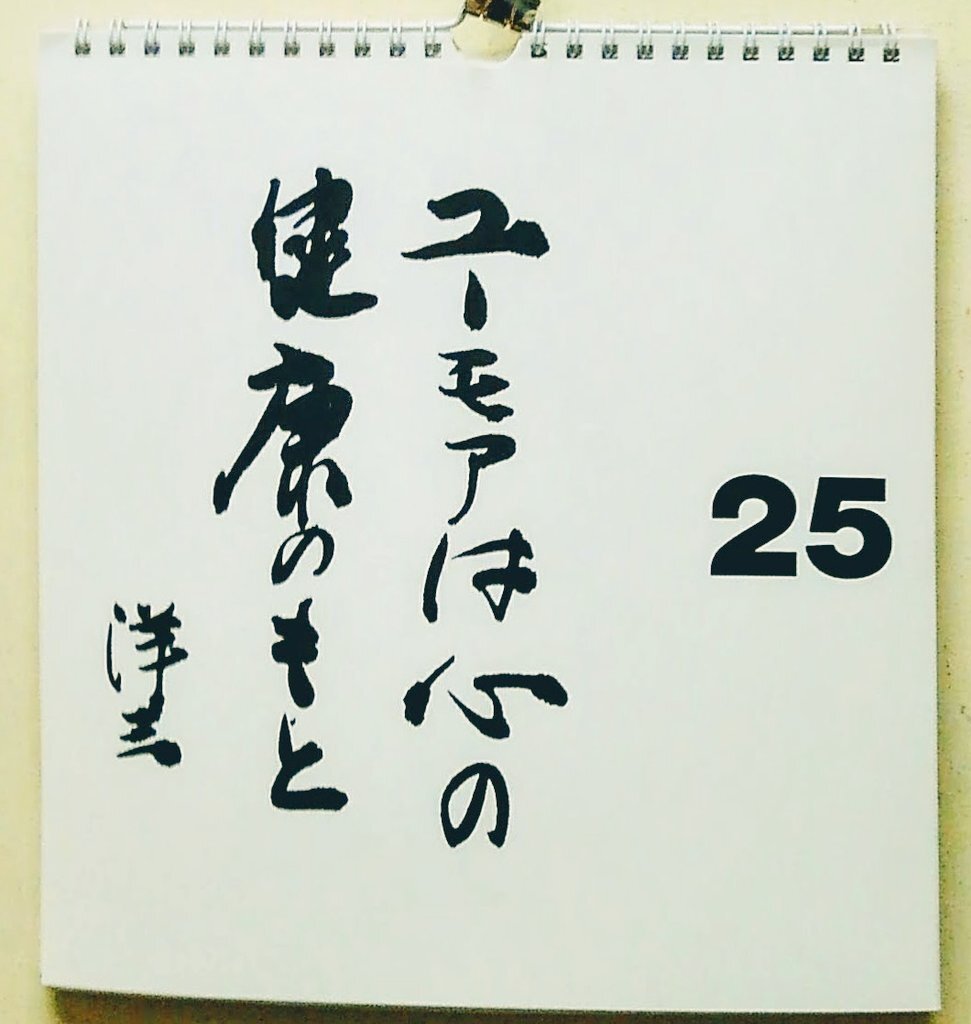 25
ユーモアは心の
健康のもと
洋三